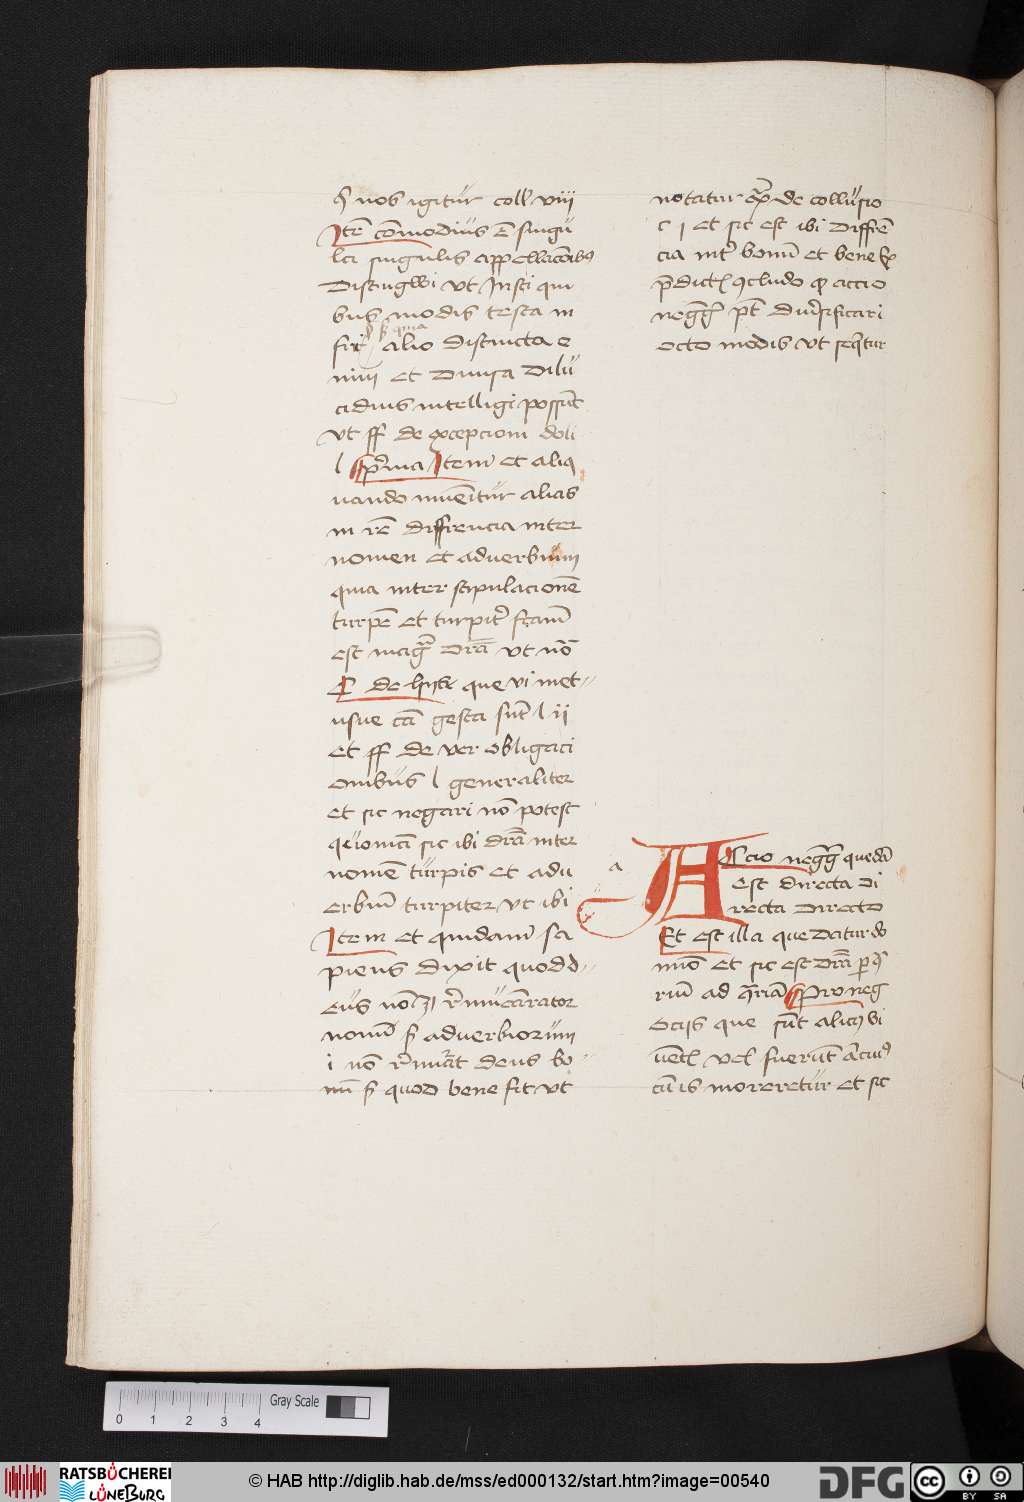 nos igitur coll viii
Itē cōmodius ē singu
la singulis appellacōibꝰ
Distingwi ut Insti qui
bus modis testa in
alio distincta e
nim et Diuisa Dilu
cidius intelligi possūt
ut ff de excepcioni doli
l pͥma Item et aliq
uando inuēitur alias
in rē diffrencia inter
nomen et aduerbium
quia inter stipulacionē
turpē et turpitͬ fcām
est magͣ drīa ut nō
que vi met
usue cā gesta sūt l ii
et ff de ver obligaci
onibus l generaliter
et sic negari nō potest
quoniā sic ibi drīa inter
nomē turpis et adu
erbiū turpiter ut ibi
Item et quidam sa
piens dixit quod d
eus nō rͤmūerator
nomī sͬ aduerbiorum
i nō rͤmūāt deus bo
nū sͬ quod bene fit ut
notatur de collusio
l i et sic est ibi Diffrē
cia intͬ bonū et bene
p̄dictꝭ ꝯcludo ꝙ accio
pt Diūsificari
octo modis ut seq̄tur
a
Accio quedā
est directa Di
recta Directo
Et est illa que Datur do
mīo et sic est
rium ad Pro neg
ociis que sūt alicꝰ vi
uētꝭ vel fuerūt
cū is moreretur et sic
0 1 2 3 4
Gray Scale
RATSBÜCHEREI
LÜNEBURG
© HAB http://diglib.hab.de/mss/ed000132/start.htm?image=00540
DFG
cc BY SA